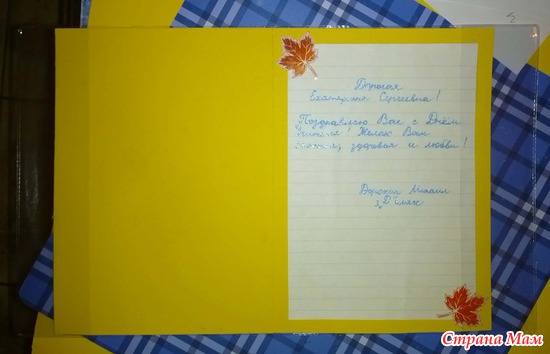 Дорогая
Екатерина Сергеевна!
Поздравляю Вас с Днём
учителя! Желаю Вам
счастья, здоровья и любви!
Михаил
3 "Д" класс
Страна Мам